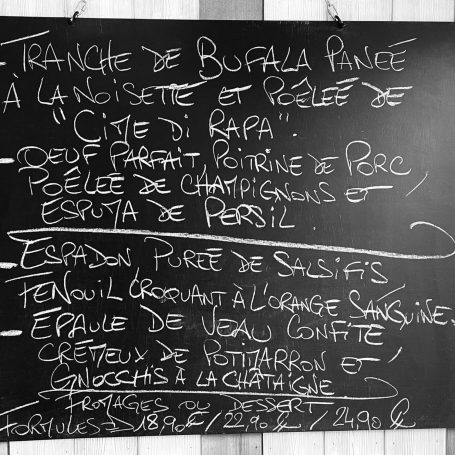 - TRANCHE DE BUFALA PANEÉ
À LA NOISETTE ET POÊLEÉ DE
"CIME DI RAPA".
- OEUF PARFAIT, POITRINE DE PORC,
POÊLEÉ DE CHAMPIGNONS ET
ESPUMA DE PERSIL.
- ESPADON, PUREÉ DE SALSIFIS
FENOUIL CROQUANT À L'ORANGE SANGUINE.
- ÉPAULE DE VEAU CONFITE
CRÉMEUX DE POTIMARRON ET
GNOCCHIS À LA CHÂTAIGNE.
FROMAGES OU DESSERT
FORMULES 18,90€ / 22,90 / 24,90 €